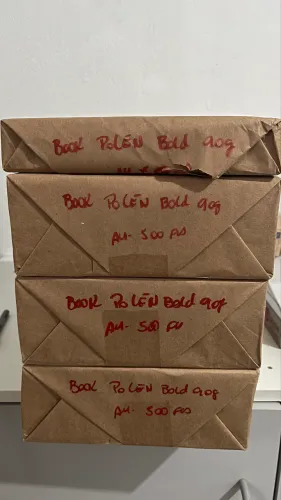 BOOK POLÉN BOLD 90g
BOOK POLÉN BOLD 90g
A4- 500 FLS
BOOK POLÉN BOLD 90g
A4- 500 FLS
BOOK POLÉN BOLD 90g
A4- 500 FLS